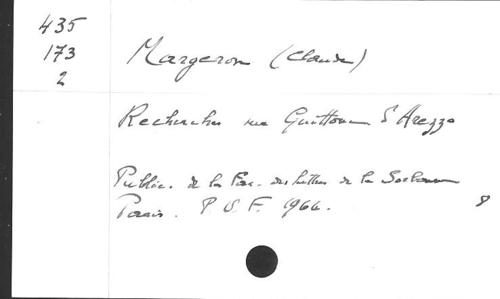 435
173
2
Margeron (Claude)
Recherches sur Guittone d'Arezzo
Public. de la Fac. des lettres de la Sorbonne
Paris. P. U F. 1966.
8